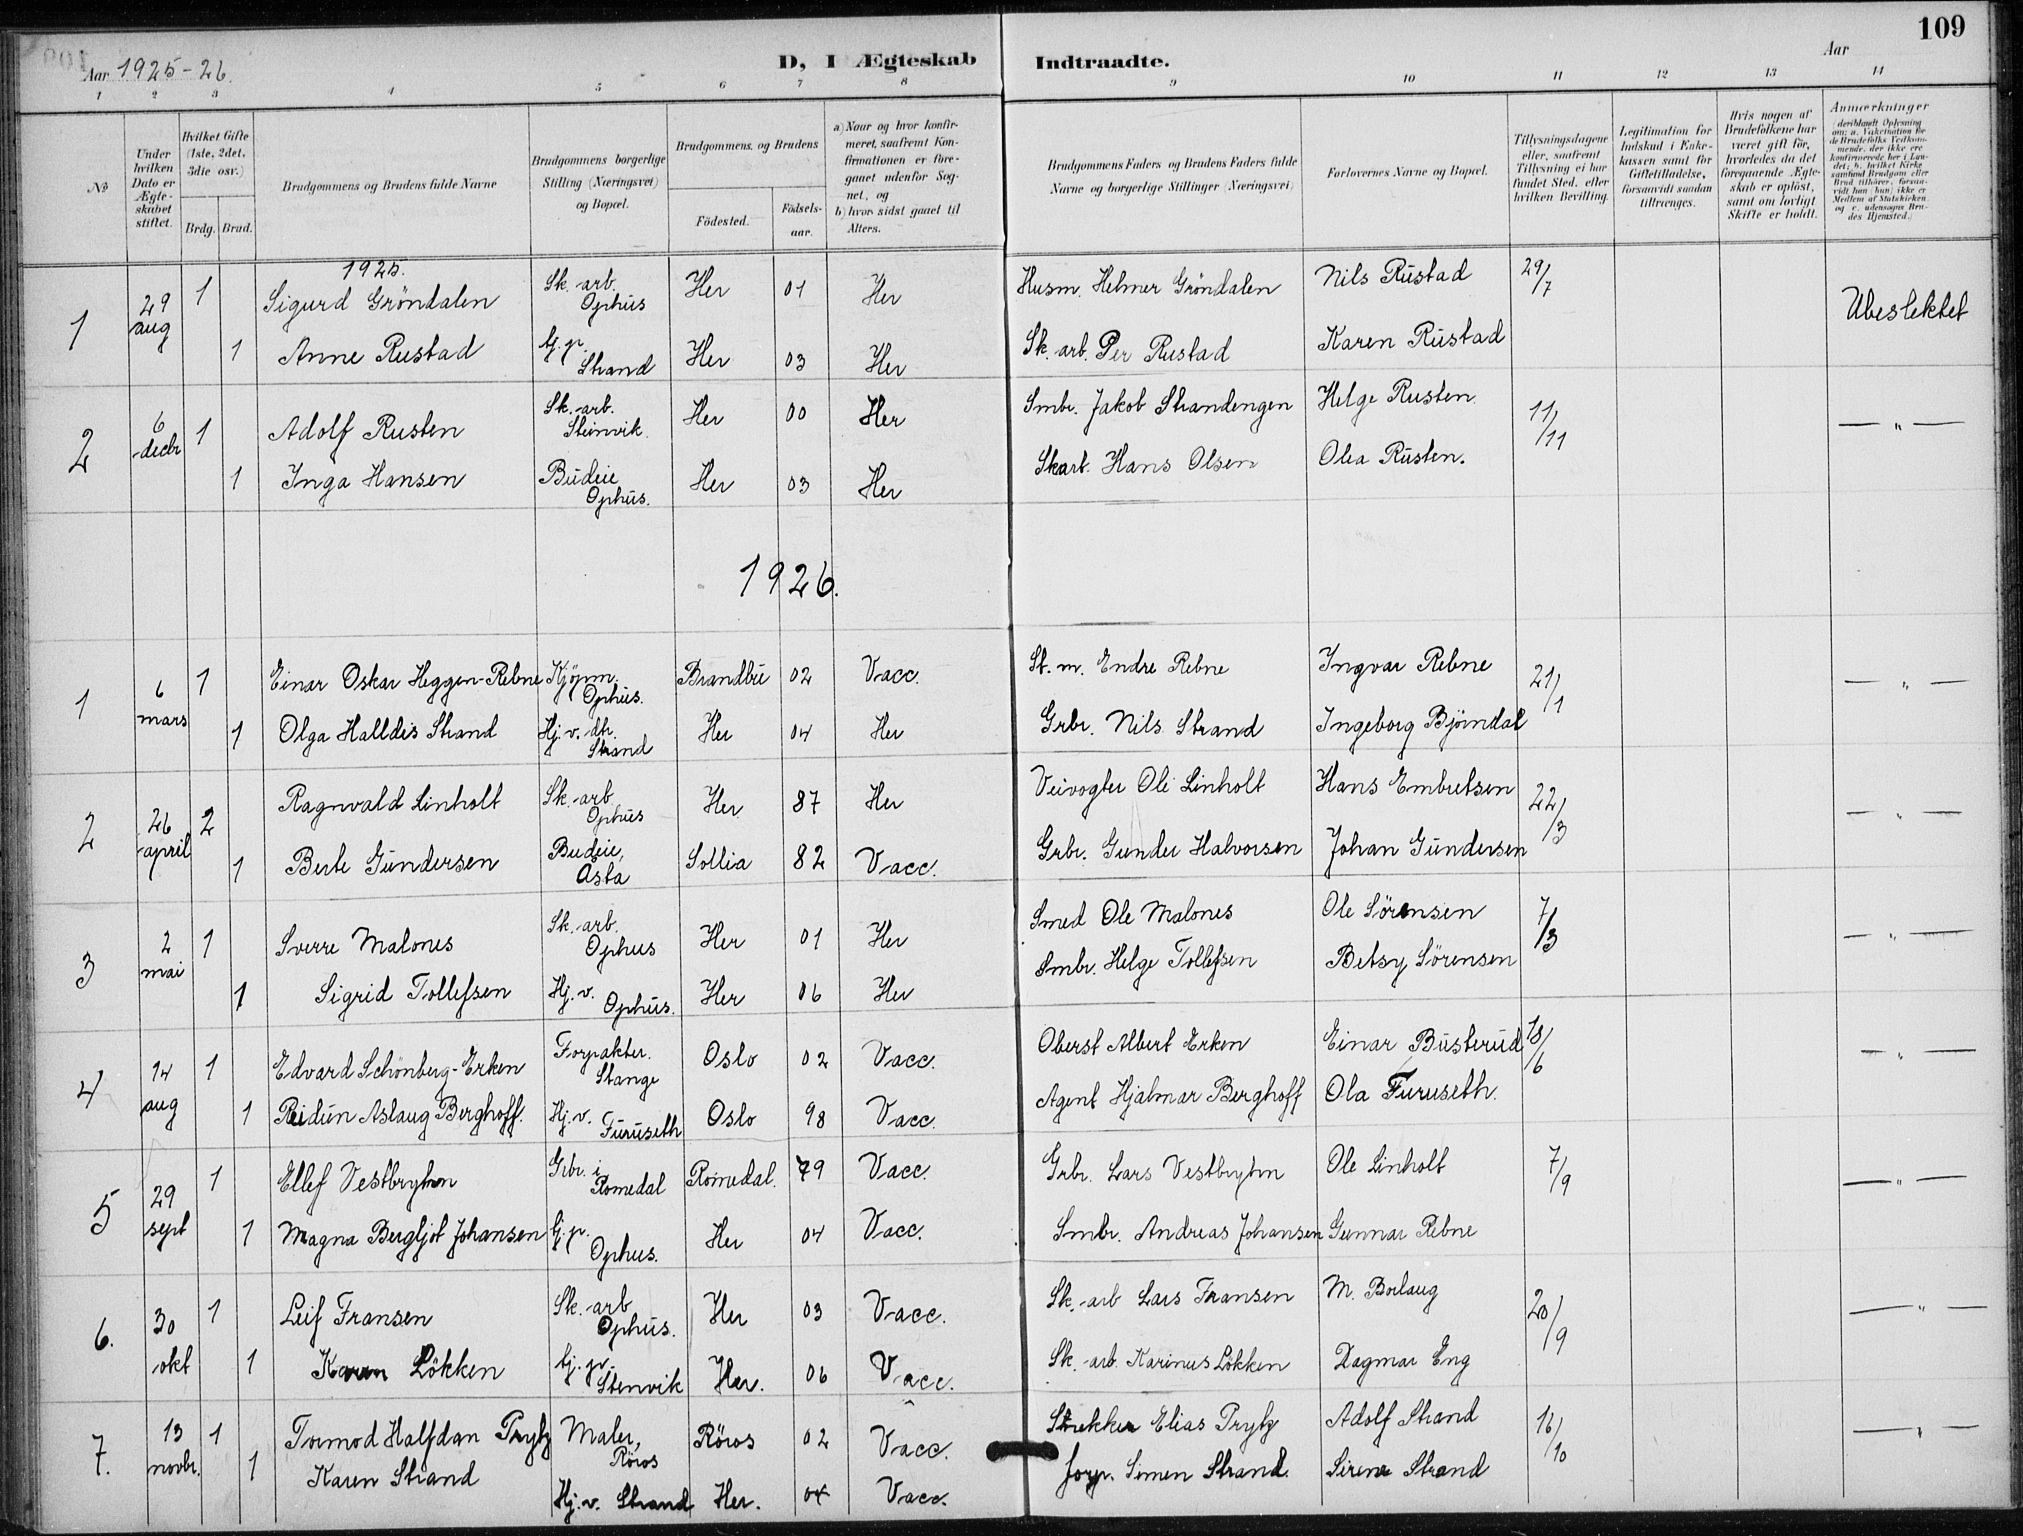 109
Aar 1925-26.
D, I Ægteskab Indtraadte.
Aar
1 2 3 4 5 6 7 8 9 10 11 12 13 14
No
Under hvilken Dato er Ægteskabet stiftet.
Hvilket Gifte (1ste, 2det, 3die osv.)
Brdg. Brud.
Brudgommens og Brudens fulde Navne
Brudgommens borgerlige Stilling (Næringsvei) og Bopæl.
Brudgommens og Brudens
Födested.
Födsels-aar.
a) Naar og hvor konfirmeret, saafremt Konfirmationen er foregaaet udenfor Sognet, og
b) hvor sidst gaaet til Alters.
Brudgommens Faders og Brudens Faders fulde Navne og borgerlige Stillinger (Næringsvei)
Forlovernes Navne og Bopæl.
Tillysningsdagene eller, saafremt Tillysning ei har fundet Sted, efter hvilken Bevilling.
Legitimation for Indskud i Enkekassen samt for Giftetilladelse, forsaavidt saadan tiltrænges.
Hvis nogen af Brudefolkene har været gift för, hvorledes da det foregaaende Ægteskab er oplöst, samt om lovligt Skifte er holdt.
Anmærkninger (deriblandt Oplysning om: a. Vakcination for de Brudefolks Vedkommende, der ikke ere konfirmerede her i Landet; b. hvilket Kirkesamfund Brudgom eller Brud tilhörer, forsaavidt han (hun) ikke er Medlem af Statskirken og c. udensogns Brudes Hjemsted.)
1925.
1 29 aug 1 Sigurd Gröndalen Sk.-arb. Ophus Her 01 Her Husm. Helmer Gröndalen Nils Rustad 29/7 Ubeslektet
1 Anne Rustad Tj.p. Strand Her 03 Her Sk.-arb. Per Rustad Karen Rustad
2 6 decbr 1 Adolf Rusten Sk.-arb. Steinvik. Her 00 Her Smbr. Jakob Strandengen Helge Rusten. 11/11 — " —
1 Inga Hansen Budeie Ophus. Her 03 Her Skarb. Hans Olsen Olea Rusten.
1926.
1 6 mars 1 Einar Oskar Heggen-Rebne Kjøpm. Ophus. Brandbu 02 Vacc. St. m. Endre Rebne Ingvar Rebne 21/1 — " —
1 Olga Halldis Strand Hj. v. dtr. Strand Her 04 Her Grbr. Nils Strand Ingeborg Bjørndal
2 26 april 2 Ragnvald Linholt Sk.-arb. Ophus Her 87 Her Veivogter Ole Linholt Hans Embretsen 22/3 — " —
1 Berte Gundersen Budeie, Åsta Sollia 82 Vacc. Grbr. Gunder Halvorsen Johan Gundersen
3 2 mai 1 Sverre Malones Sk.-arb. Ophus Her 01 Her Smed Ole Malones Ole Sörensen 7/3 — " —
1 Sigrid Tollefsen Hj. v. Ophus. Her 06 Her Smbr. Helge Tollefsen Betsy Sörensen
4 14 aug 1 Edvard Schönberg-Erken Forpakter. Stange Oslo 02 Vacc. Oberst Albert Erken Einar Busterud 18/6 — " —
1 Reidun Aslaug Berghoff. Hj. v. Furuseth Oslo 98 Vacc. Agent Hjalmar Berghoff Ola Furuseth.
5 29 sept 1 Ellef Vestbrythn Grbr. i Romedal Romedal. 79 Vacc. Grbr. Lars Vestbrythn Ole Linholt 7/9 — " —
1 Magna Bergljot Johansen Tj. p. Ophus. Her 04 Vacc. Smbr. Andreas Johansen Gunnar Rebne
6. 30 okt 1 Leif Fransen Sk.-arb Ophus. Her 03 Vacc. Sk.-arb Lars Fransen M. Borlaug 20/9 — " —
1 Karen Lökken Tj. p. Stenvik Her. 06 Vacc. Sk.-arb. Karinus Lökken Dagmar Eng
7. 13 novbr. 1 Tormod Halfdan Prytz Maler, Röros Röros 02 Vacc. Elias Prytz Adolf Strand 16/10 — " —
1 Karen Strand Hj. v. Strand Her. 04 Vacc. forp. Simen Strand. Sirene Strand